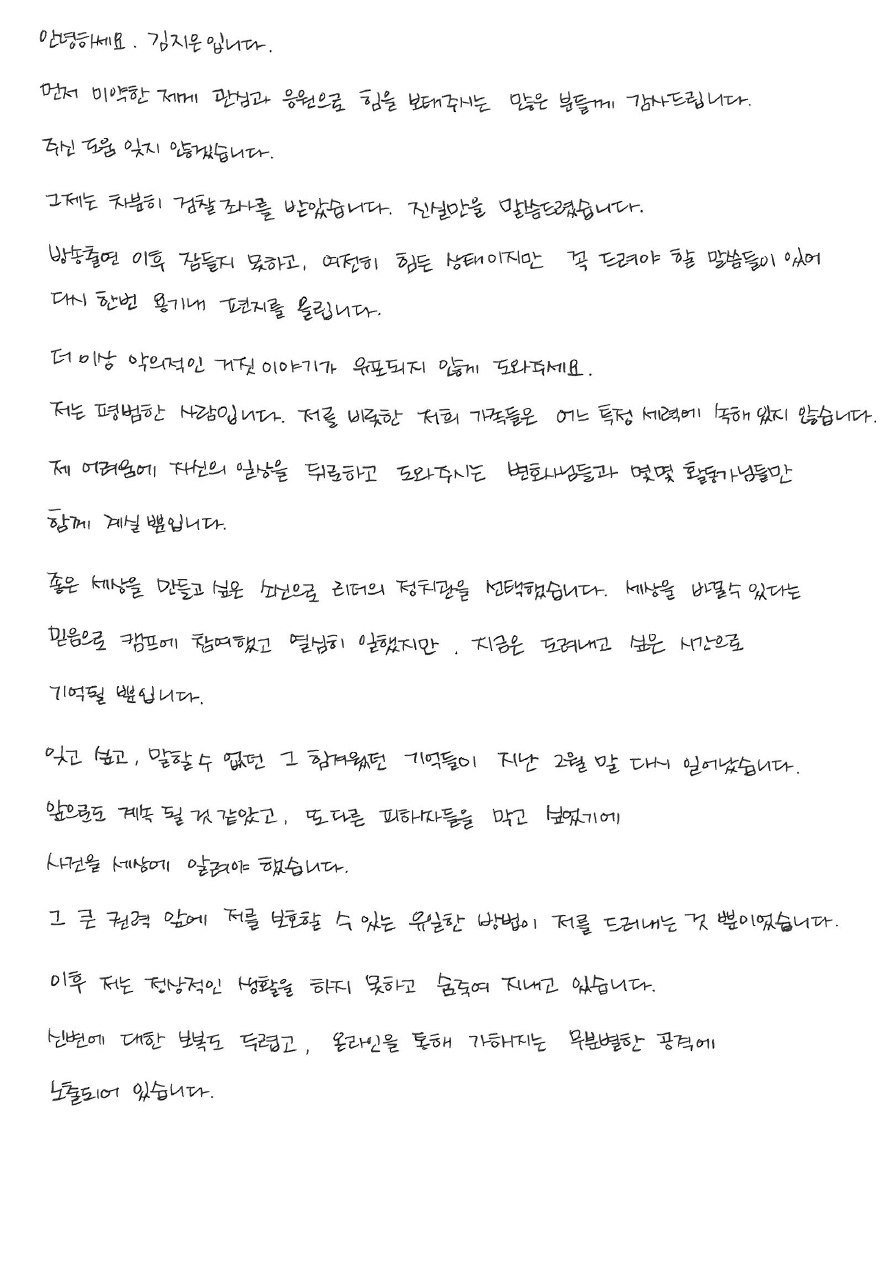 안녕하세요. 김지은입니다.
먼저 미약한 제게 관심과 응원으로 힘을 보태주시는 많은 분들께 감사드립니다.
주신 도움 잊지 않겠습니다.
그제는 차분히 검찰 조사를 받았습니다. 진실만을 말씀드렸습니다.
방송출연 이후 잠들지 못하고, 여전히 힘든 상태이지만 꼭 드려야 할 말씀들이 있어
다시 한번 용기내 편지를 올립니다.
더 이상 악의적인 거짓 이야기가 유포되지 않게 도와주세요.
저는 평범한 사람입니다. 저를 비롯한 저희 가족들은 어느 특정 세력에 속해 있지 않습니다.
제 어려움에 자신의 일상을 뒤로하고 도와주시는 변호사님들과 몇몇 활동가님들만
함께 계실 뿐입니다.
좋은 세상을 만들고 싶은 소신으로 리더의 정치관을 선택했습니다. 세상을 바꿀수 있다는
믿음으로 캠프에 참여했고 열심히 일했지만, 지금은 도려내고 싶은 시간으로
기억될 뿐입니다.
잊고 싶고, 말할 수 없던 그 힘겨웠던 기억들이 지난 2월 말 다시 일어났습니다.
앞으로도 계속 될 것 같았고, 또다른 피해자들을 막고 싶었기에
사건을 세상에 알려야 했습니다.
그 큰 권력 앞에 저를 보호할 수 있는 유일한 방법이 저를 드러내는 것 뿐이었습니다.
이후 저는 정상적인 생활을 하지 못하고 숨죽여 지내고 있습니다.
신변에 대한 보복도 두렵고, 온라인을 통해 가해지는 무분별한 공격에
노출되어 있습니다.